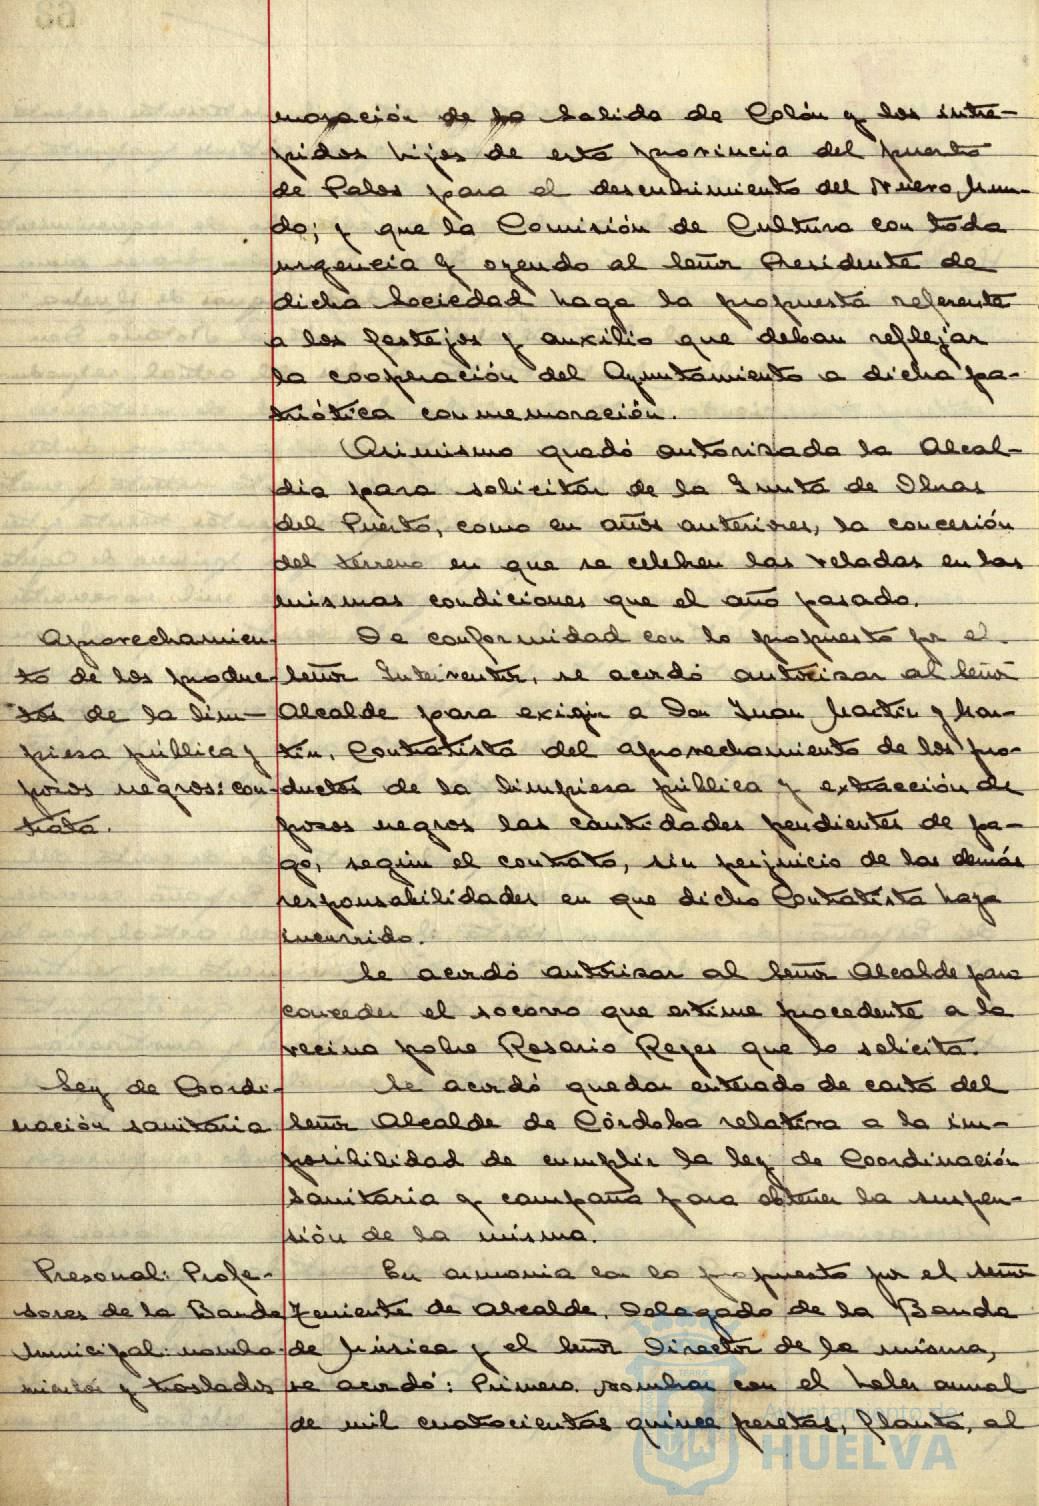 moración de la salida de Colón y los intré-
pidos hijos de esta provincia del puerto
de Palos para el descubrimiento del Nuevo Mun-
do; y que la Comisión de Cultura con toda
urgencia y oyendo al Señor Presidente de
dicha Sociedad haga la propuesta referente
a los festejos y auxilio que deban reflejar
la cooperación del Ayuntamiento a dicha pa-
triótica conmemoración.
Asimismo quedó autorizada la Alcal-
día para solicitar de la Junta de Obras
del Puerto, como en años anteriores, la concesión
del terreno en que se celebren las veladas en las
mismas condiciones que el año pasado.
Aprovechamien-
to de los produc-
tos de la lim-
pieza pública y
pozos negros: con-
trata.
De conformidad con lo propuesto por el
Señor Interventor, se acordó autorizar al Señor
Alcalde para exigir a Don Juan Martín y Mar-
tín, Contratista del aprovechamiento de los pro-
ductos de la limpieza pública y extracción de
pozos negros las cantidades pendientes de pa-
go, según el contrato, sin perjuicio de las demás
responsabilidades en que dicho Contratista haya
incurrido.
Se acordó autorizar al Señor Alcalde para
conceder el socorro que estime procedente a la
vecina pobre Rosario Reyes que lo solicita.
Ley de Coordi-
nación sanitaria
Se acordó quedar enterado de carta del
Señor Alcalde de Córdoba relativa a la im-
posibilidad de cumplir la ley de Coordinación
Sanitaria y campaña para obtener la suspen-
sión de la misma.
Presonal: Profe-
sores de la Banda
Municipal: nombra-
mientos y traslados
En armonía con lo propuesto por el Señor
Teniente de Alcalde, Delegado de la Banda
de Música y el Señor Director de la misma,
se acordó: Primero. Nombrar con el haber anual
de mil cuatrocientas quince pesetas, flauta, al
Ayuntamiento de
HUELVA